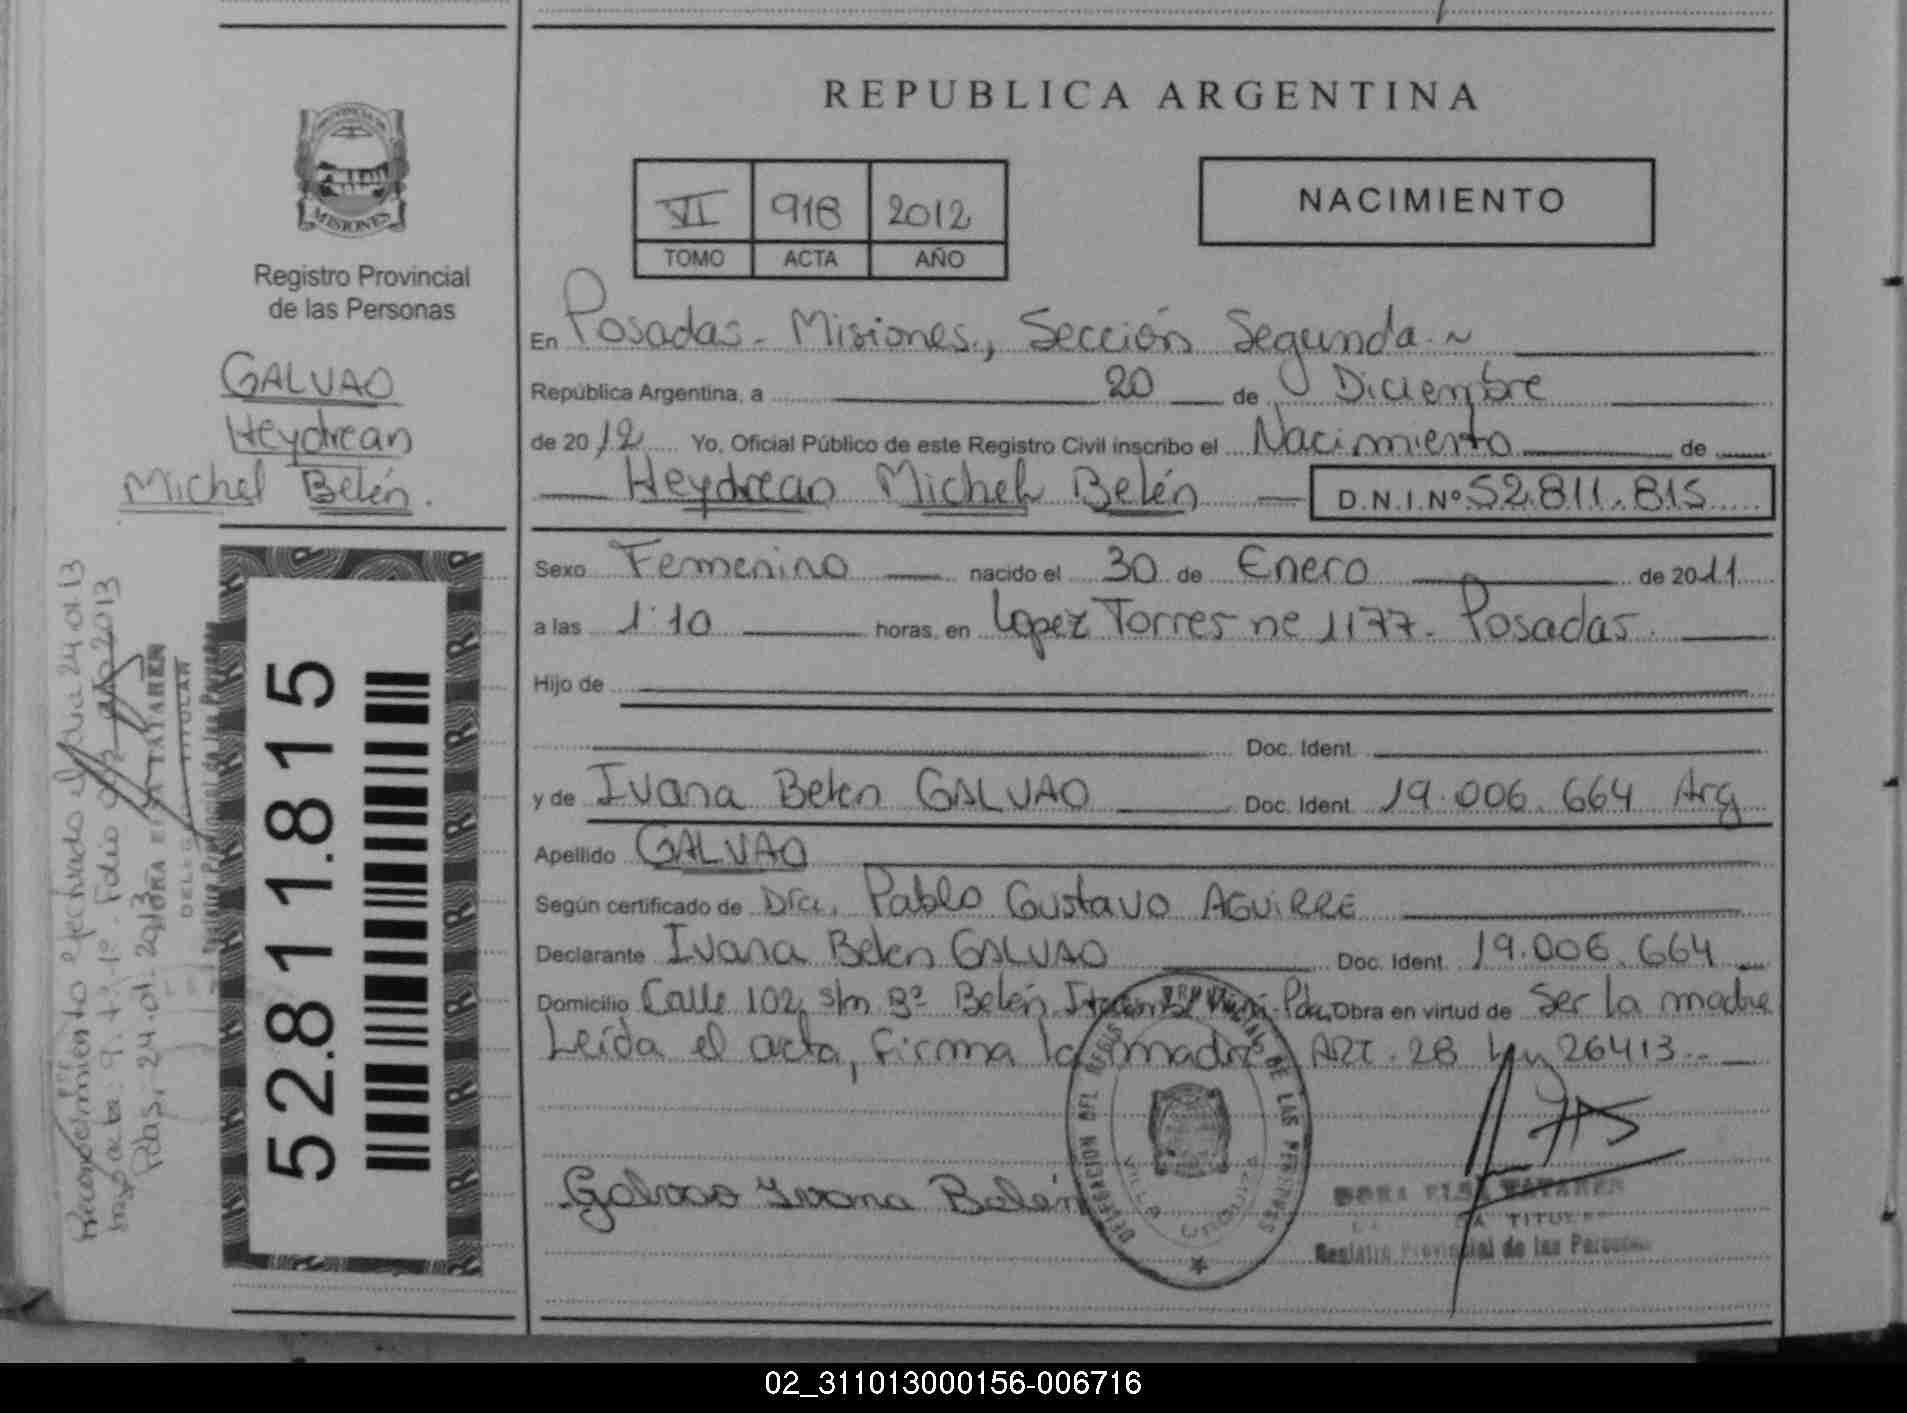 REPUBLICA ARGENTINA
PROVINCIA DE
MISIONES
Registro Provincial
de las Personas
GALVAO
Heydrean
Michel Belén.
VI 918 2012
TOMO ACTA AÑO
NACIMIENTO
En Posadas - Misiones, Sección Segunda ~
República Argentina, a 20 de Diciembre
de 2012 Yo, Oficial Público de este Registro Civil inscribo el Nacimiento de
Heydrean Michel Belén D.N.I.Nº 52.811.815
Sexo Femenino nacido el 30 de Enero de 2011
a las 1:10 horas, en Lopez Torres ne 1177. Posadas.
Hijo de
Doc. Ident.
y de Ivana Belen GALVAO Doc. Ident. 19.006.664 Arg
Apellido GALVAO
Según certificado de Dra. Pablo Gustavo AGUIRRE
Declarante Ivana Belen GALVAO Doc. Ident. 19.006.664
Domicilio Calle 102 s/n Bº Belén Obra en virtud de Ser la madre
Leída el acta, firma la madre ART. 28 Ley 26413
Galvao Ivana Belén
DELEGACION DEL REGISTRO PROVINCIAL DE LAS PERSONAS
VILLA URQUIZA
DORA ELSA TATAREN
TITULAR
Registro Provincial de las Personas
52.811.815
Reconocimiento efectuado el dia 24 01 13
bajo acta: 9. tº 1º. Folio año 2013
Pdas, 24.01.2013
DORA ELSA TATAREN
TITULAR
Registro Provincial de las Personas
02_311013000156-006716